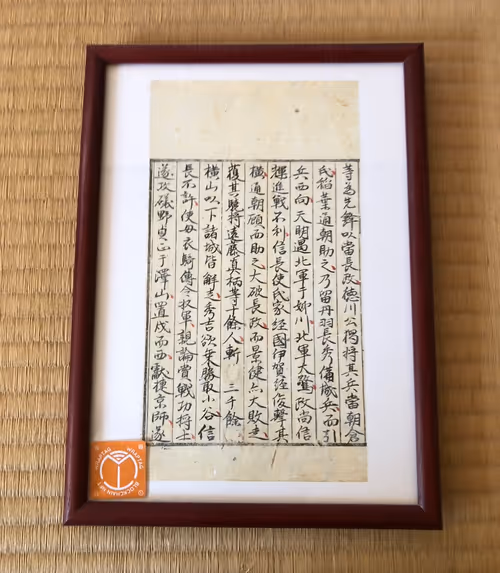 等為先鋒以當長政德川公獨将其兵當朝倉
氏稲葉通朝助之乃留丹羽長秀備兵而引
兵西向天明遇北軍于姉川北軍大驚政尚信
輝進戰不利信長使氏家經國伊賀經俊擊其
橫通朝顧而助之大破長政而景健亦大敗走
獲其驍将遠藤真柄等十餘人斬 三千餘
橫山以下諸城皆解走秀吉欲乗勝取小谷信
長不許使母衣騎傳令收軍親論賞戰功将士
遂攻礒野貞正于澤山置戍而西獻捷京師遂
WRAPTAG
BLOCKCHAIN NFT